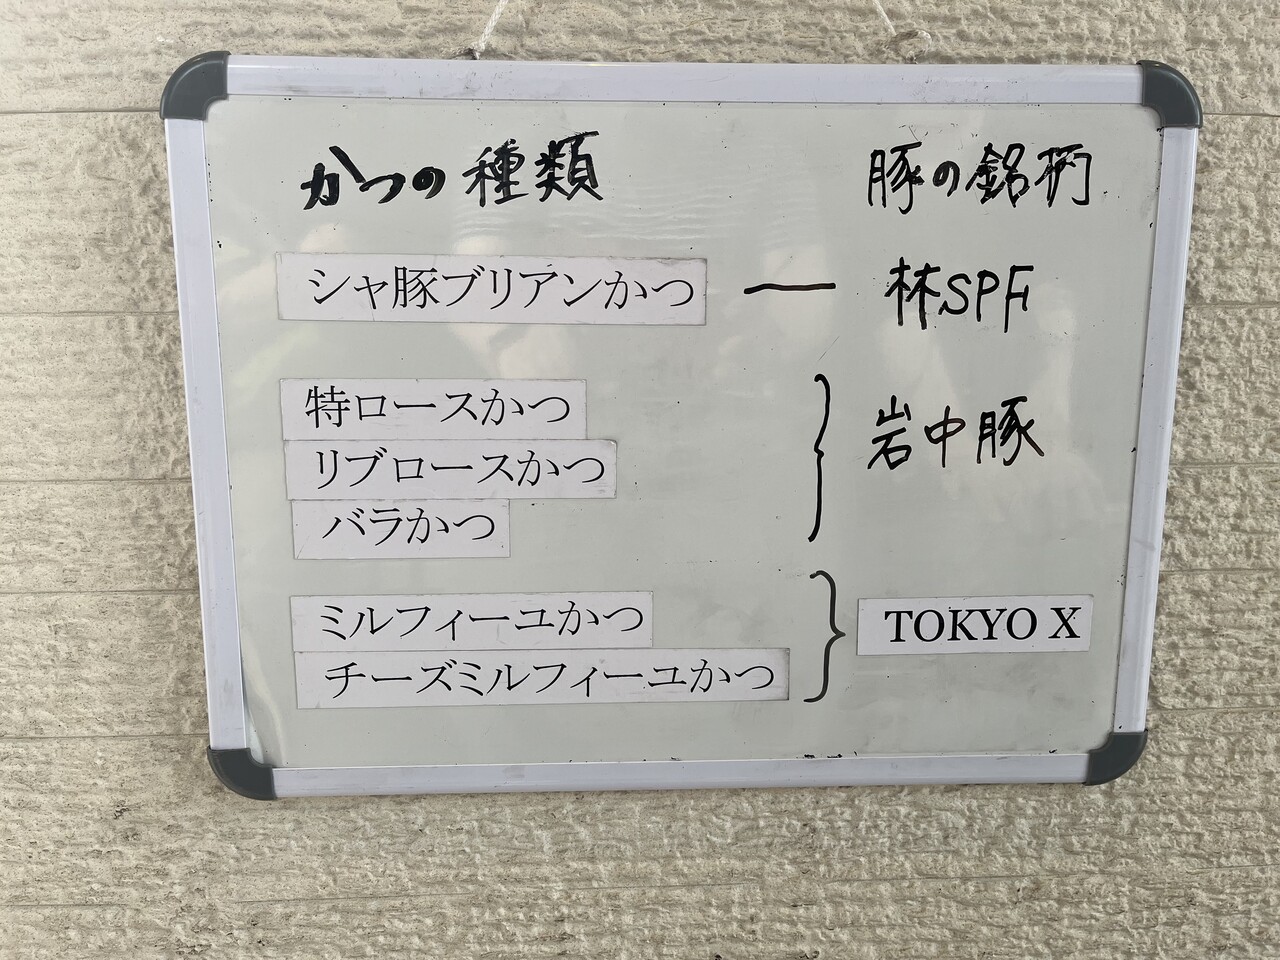 かつの種類
豚の銘柄
シャ豚ブリアンかつ — 林SPF
特ロースかつ
リブロースかつ
バラかつ
岩中豚
ミルフィーユかつ
チーズミルフィーユかつ
TOKYO X